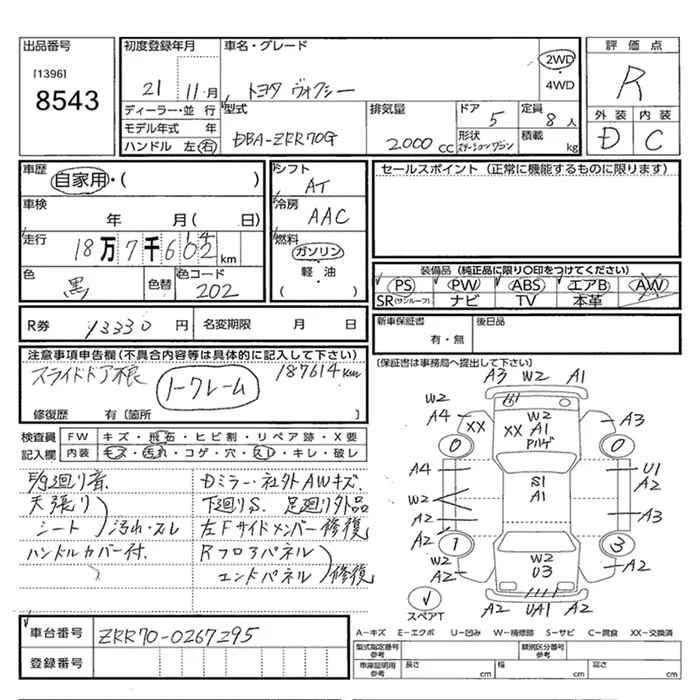 出品番号
[1396]
8543
初度登録年月
21 11月
車名・グレード
トヨタ ヴォクシー
2WD
・
4WD
評価点
R
外装 内装
D C
ディーラー・並行
モデル年式 年
ハンドル 左 右
型式
DBA-ZRR70G
排気量
2000 CC
ドア
5
定員
8 人
形状
ステーションワゴン
積載
kg
車歴
自家用・( )
車検
年 月( 日)
走行
18万7千6 km
色
黒
色替
色コード
202
シフト
AT
冷房
AAC
燃料
ガソリン
・
軽・油
( )
セールスポイント (正常に機能するものに限ります)
装備品 (純正品に限り○印をつけてください)
PS PW ABS エアB AW
SR(サンルーフ) ナビ TV 本革
R券 13330 円
名変期限 月 日
新車保証書
有・無
後日品
[保証書は事務局へ提出して下さい]
注意事項申告欄(不具合内容等は具体的に記入して下さい)
スライドドア不良 トークレーム 187614km
修復歴 有〔箇所 〕
検査員 FW キズ・飛石・ヒビ割・リペア跡・X要
記入欄 内装 キズ・汚れ・コゲ・穴・スレ・キレ・破レ
廻り音
天張り
シート 汚れ・スレ
ハンドルカバー付.
Dミラー・社外AWキズ.
下廻りS. 足廻り外品
左Fサイドメンバー修復
Rフロアパネル
エンドパネル 修復
A3 W2 A1
W2
A4 XX
W2
XX A1
A3
0 0
A4
S1
A1
U1
A2
W2
A2
A3
A2
1 3
W2
A2
W2
U3
A2
スペアT
A2 UA1 A2
A-キズ E-エクボ U-凹み W-補修跡 S-サビ C-腐食 XX-交換済
車台番号 ZRR70-0267295
登録番号
型式指定番号
参考
類別区分番号
参考
車庫証明用
参考
長さ cm
幅 cm
高さ cm